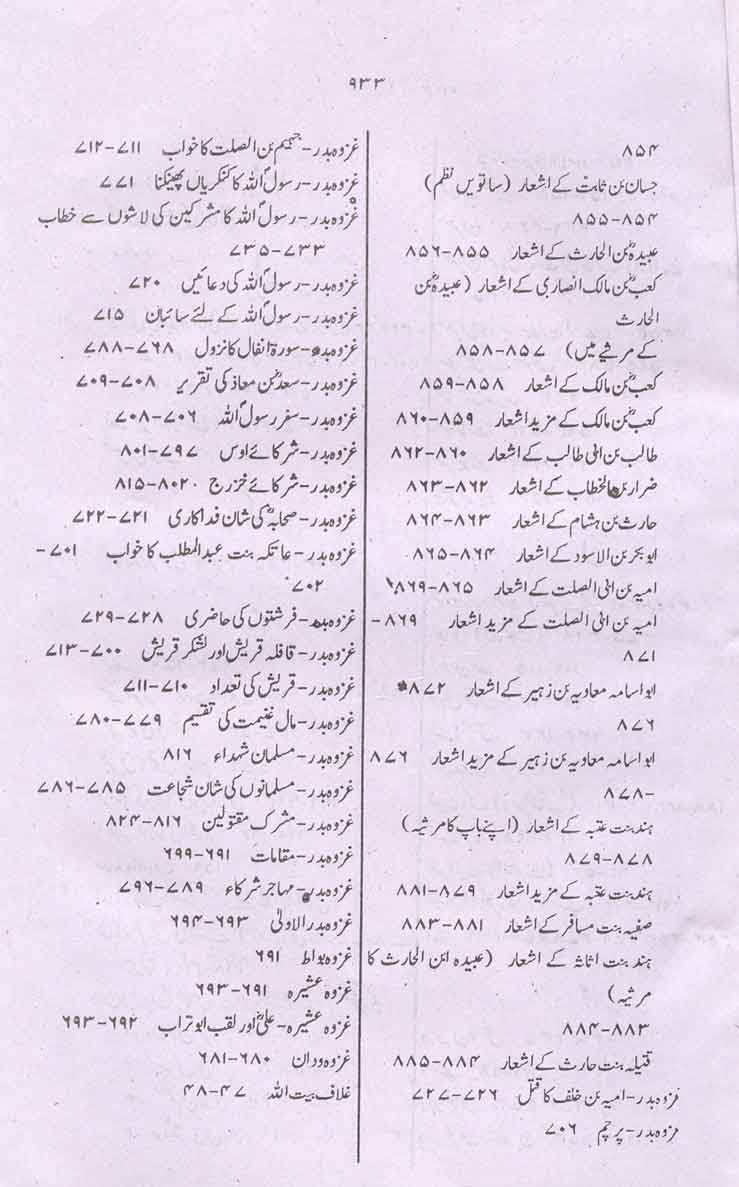 ۹۳۳
۸۵۴
حسان بن ثابت کے اشعار (ساتویں نظم)
۸۵۴-۸۵۵
عبیدہؓ بن الحارث کے اشعار ۸۵۵-۸۵۶
کعبؓ بن مالک انصاری کے اشعار (عبیدہؓ بن
الحارث
کے مرثیے میں) ۸۵۷-۸۵۸
کعبؓ بن مالک کے اشعار ۸۵۸-۸۵۹
کعبؓ بن مالک کے مزید اشعار ۸۵۹-۸۶۰
طالب بن ابی طالب کے اشعار ۸۶۰-۸۶۲
ضرار بن الخطاب کے اشعار ۸۶۲-۸۶۳
حارث بن ہشام کے اشعار ۸۶۳-۸۶۴
ابو بکر بن الاسود کے اشعار ۸۶۴-۸۶۵
امیہ بن ابی الصلت کے اشعار ۸۶۵-۸۶۹
امیہ بن ابی الصلت کے مزید اشعار ۸۶۹-
۸۷۱
ابو اسامہ معاویہ بن زہیر کے اشعار ۸۷۲
۸۷۶
ابو اسامہ معاویہ بن زہیر کے مزید اشعار ۸۷۶
-۸۷۸
ہند بنت عتبہ کے اشعار (اپنے باپ کا مرثیہ)
۸۷۸-۸۷۹
ہند بنت عتبہ کے مزید اشعار ۸۷۹-۸۸۱
صفیہ بنت مسافر کے اشعار ۸۸۱-۸۸۳
ہند بنت اثاثہ کے اشعار (عبیدہ ابن الحارث کا
مرثیہ)
۸۸۳-۸۸۴
قتیلہ بنت حارث کے اشعار ۸۸۴-۸۸۵
غزوہ بدر-امیہ بن خلف کا قتل ۷۲۶-۷۲۷
غزوہ بدر-پرچم ۷۰۶
غزوہ بدر-جہیم بن الصلت کا خواب ۷۱۱-۷۱۲
غزوہ بدر-رسولؐ اللہ کا کنکریاں پھینکنا ۷۷۱
غزوہ بدر-رسولؐ اللہ کا مشرکین کی لاشوں سے خطاب
۷۳۳-۷۳۵
غزوہ بدر-رسولؐ اللہ کی دعائیں ۷۲۰
غزوہ بدر-رسولؐ اللہ کے لئے سائبان ۷۱۵
غزوہ بدر-سورۃ انفال کا نزول ۷۶۸-۷۸۸
غزوہ بدر-سعدؓ بن معاذ کی تقریر ۷۰۸-۷۰۹
غزوہ بدر-سفر رسولؐ اللہ ۷۰۶-۷۰۸
غزوہ بدر-شرکائے اوس ۷۹۷-۸۰۱
غزوہ بدر-شرکائے خزرج ۸۰۲-۸۱۵
غزوہ بدر-صحابہؓ کی شان فداکاری ۷۲۱-۷۲۲
غزوہ بدر-عاتکہ بنت عبدالمطلب کا خواب ۷۰۱-
۷۰۲
غزوہ بدر-فرشتوں کی حاضری ۷۲۸-۷۲۹
غزوہ بدر-قافلہ قریش اور لشکر قریش ۷۰۰-۷۱۳
غزوہ بدر-قریش کی تعداد ۷۱۰-۷۱۱
غزوہ بدر-مال غنیمت کی تقسیم ۷۷۹-۷۸۰
غزوہ بدر-مسلمان شہداء ۸۱۶
غزوہ بدر-مسلمانوں کی شان شجاعت ۷۸۵-۷۸۶
غزوہ بدر-مشرک مقتولین ۸۱۶-۸۲۴
غزوہ بدر-مقامات ۶۹۱-۶۹۹
غزوہ بدر-مہاجر شرکاء ۷۸۹-۷۹۶
غزوہ بدر الاولیٰ ۶۹۳-۶۹۴
غزوہ بواط ۶۹۱
غزوہ عشیرہ ۶۹۱-۶۹۳
غزوہ عشیرہ-علیؓ اور لقب ابو تراب ۶۹۲-۶۹۳
غزوہ ودان ۶۸۰-۶۸۱
غلاف بیت اللہ ۴۷-۴۸